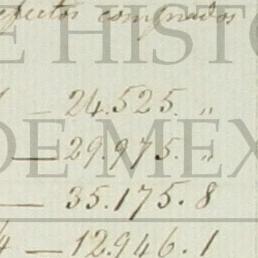 efectos comprados
E HISTO
— 24.525. „
DE MEX
— 29.975. „
— 35.175.8
4 — 12.946.1